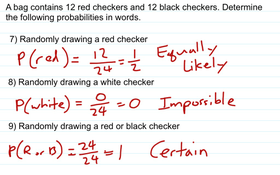 A bag contains 12 red checkers and 12 black checkers. Determine
the following probabilities in words.
7) Randomly drawing a red checker
P(red) = 12/24 = 1/2 Equally Likely
8) Randomly drawing a white checker
P(white) = 0/24 = 0 Impossible
9) Randomly drawing a red or black checker
P(R or B) = 24/24 = 1 Certain